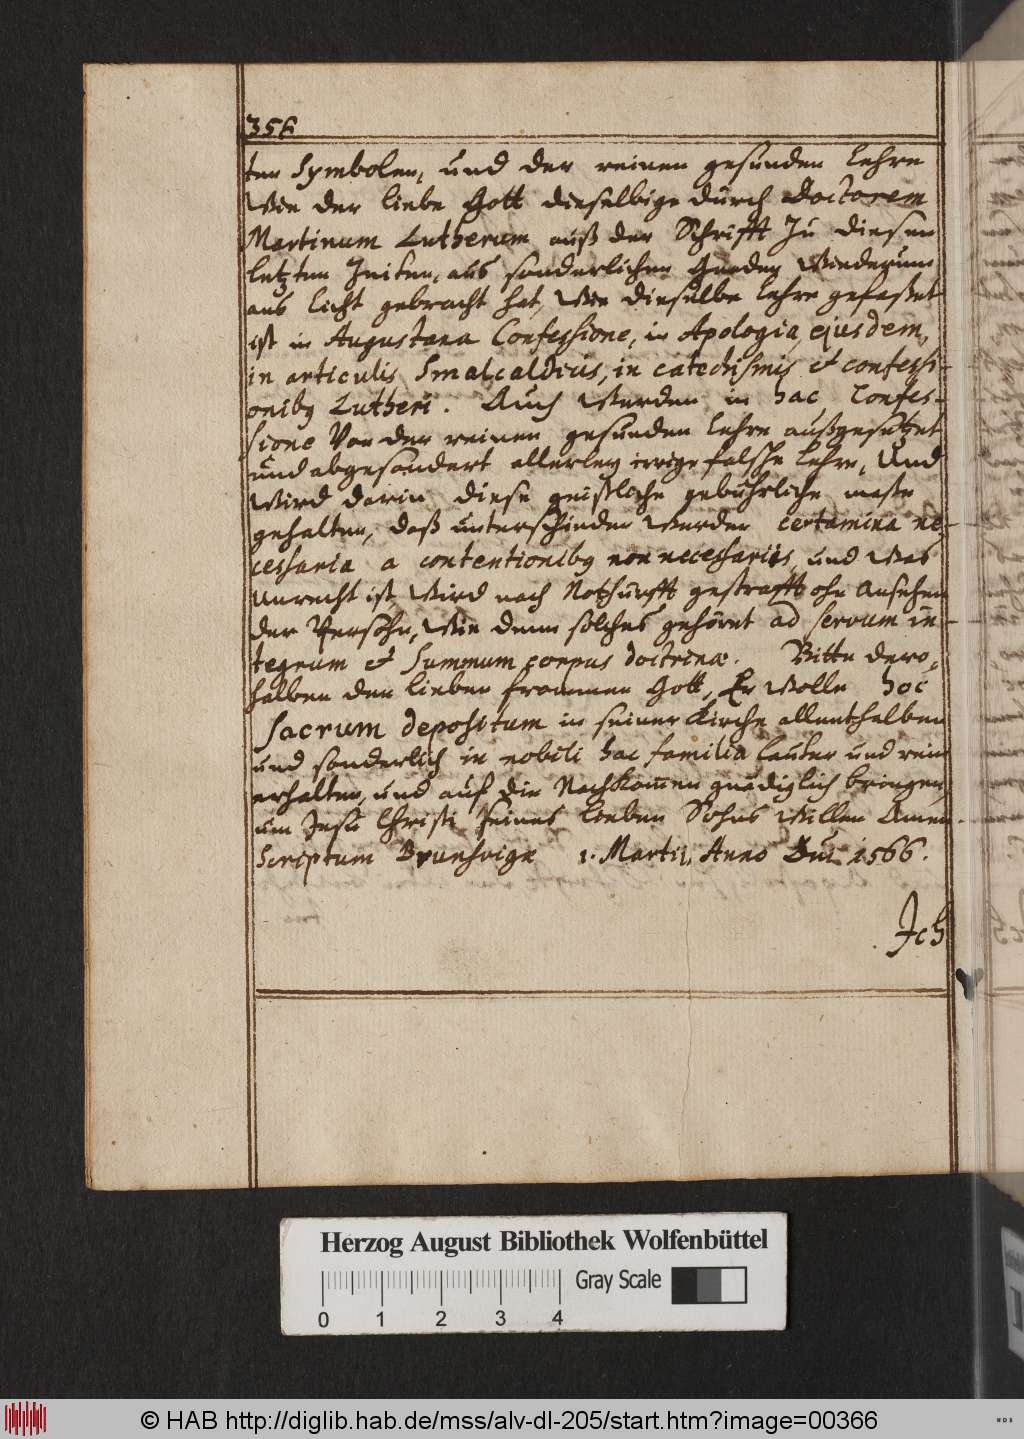 356
ten Symbolen, und der reinen gesunden Lehre
Wie der liebe Gott dieselbige durch Doctorem
Martinum Lutherum auß der Schrifft Zu diesen
letzten Zeiten, aus sonderlichen Gnaden Wiederumb
ans licht gebracht hat, Wie dieselbe Lehre gefaßet
ist in Augustana Confessione, in Apologia ejusdem,
in articulis Smalcaldicis, in catechismis et confessi-
onibus Lutheri. Auch Werden in hac Confes-
sione Von der reinen gesunden Lehre außgesetzet
und abgesondert allerley irrige falsche Lehre, Und
Wird darin diese geistliche gebührliche maße
gehalten, daß unterschieden Werden certamina ne-
cessaria a contentionibus non necessariis, und Was
Unrecht ist, Wird nach Nothurfft gestrafft ohn Ansehen
der Persohn, Wie denn solches gehöret ad servum in-
tegrum et Summum corpus doctrinæ. Bitte dero-
halben den lieben frommen Gott, Er Wolle hoc
Sacrum depositum in seiner Kirche allenthalben
und sonderlich in nobili hac familia lauter und rein
erhalten, und auf die Nachkomen gnädiglich bringen,
um Jesu Christi seines lieben Sohns Willen Amen.
Scriptum Brunsvigæ 1. Martii, Anno Dni 1566.
Ich
Herzog August Bibliothek Wolfenbüttel
Gray Scale
0 1 2 3 4
© HAB http://diglib.hab.de/mss/alv-dl-205/start.htm?image=00366